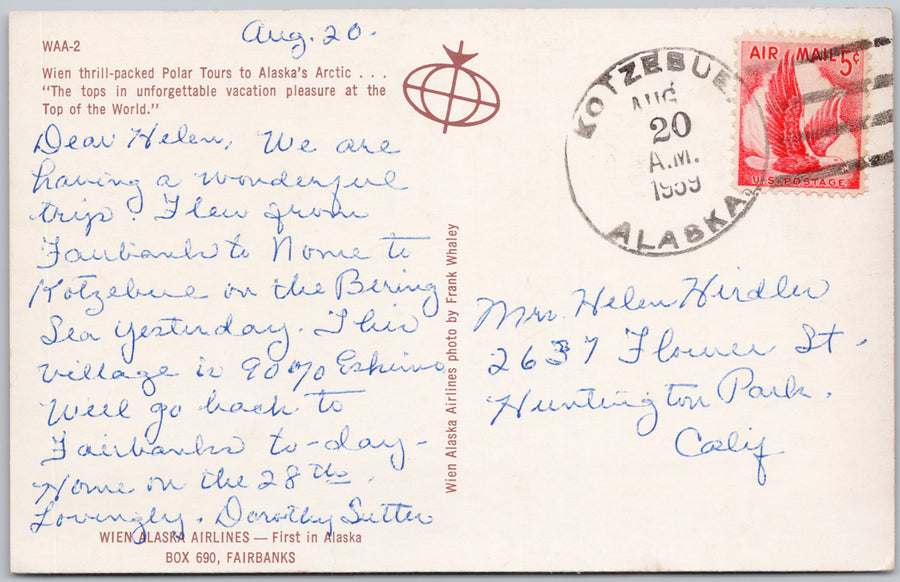 WAA-2
Aug. 20.
Wien thrill-packed Polar Tours to Alaska's Arctic . . .
"The tops in unforgettable vacation pleasure at the
Top of the World."
Dear Helen, We are
having a wonderful
trip. Flew from
Fairbanks to Nome to
Kotzebue on the Bering
Sea yesterday. This
village is 90% Eskimo
Will go back to
Fairbanks to-day-
Home on the 28ths.
Lovingly. Dorothy Sutter
WIEN ALASKA AIRLINES — First in Alaska
BOX 690, FAIRBANKS
Wien Alaska Airlines photo by Frank Whaley
KOTZEBUE
AUG
20
A.M.
1959
ALASKA
AIR MAIL 5¢
U.S. POSTAGE
Mrs. Helen Hirdler
2637 Flower St.
Huntington Park.
Calif